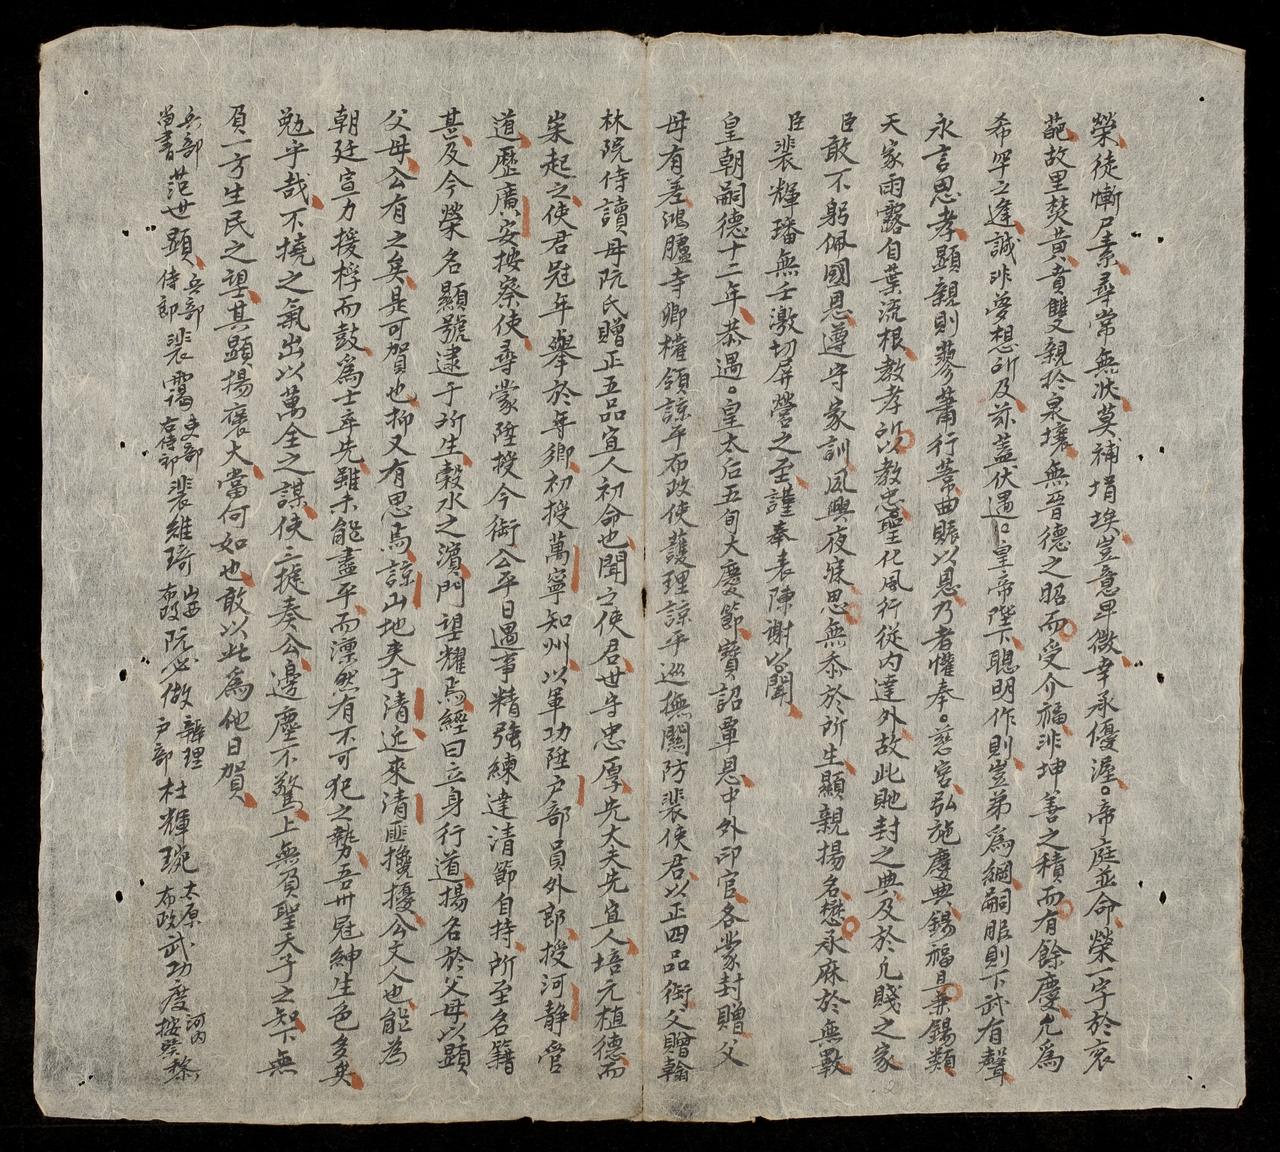 榮徒慚尸素尋常無狀莫補涓埃豈意卑微幸承優渥帝庭並命榮一字於衮
葩故里焚黃賁雙親於泉壤無晉德之昭而受介福非坤善之積而有餘慶允爲
希罕之逢誠非夢想所及茲蓋伏遇皇帝陛下聰明作則豈弟爲綱嗣服則下武有聲
永言思孝顯親則蓼蕭行葦曲賑以恩乃者懽奉慈宮弘施慶典錫福且兼錫類
天家雨露自葉流根教孝所以教忠聖化風行從內達外故此貤封之典及於凡賤之家
臣敢不躬佩國恩遵守家訓夙興夜寐思無忝於所生顯親揚名懋承庥於無斁
臣裴輝璠無任激切屏營之至謹奉表陳謝以聞
皇朝嗣德十二年恭遇皇太后五旬大慶節寶詔覃恩中外印官各蒙封贈父
母有差鴻臚寺卿權領諒平布政使護理諒平巡撫關防裴使君以正四品銜父贈翰
林院侍讀母阮氏贈正五品宜人初命也聞之使君世守忠厚先大夫先宜人培元植德而
崇起之使君冠年舉於鄉初授萬寧知州以軍功陞户部員外郎授河靜管
道歷廣安按察使尋蒙陞授今銜公平日遇事精強練達清節自持所至名籍
甚及今榮名顯號逮于所生穀水之濱門望耀焉經曰立身行道揚名於父母以顯
父母公有之矣是可賀也抑又有思焉諒山地夾于清近來清匪攙擾公文人也能為
朝廷宣力援桴而鼓爲士卒先雖未能盡平而凜然有不可犯之勢吾卅冠紳生色多矣
勉乎哉不撓之氣出以萬全之謀使三捷奏公邊塵不驚上無負聖天子之知下無
負一方生民之望其顯揚褒大當何如也敢以此爲他日賀
兵部尚書范世顯兵部侍郎裴靄吏部右侍郎裴維琦山西布政阮必做辦理户部杜輝琬太原布政武功度河內按察黎